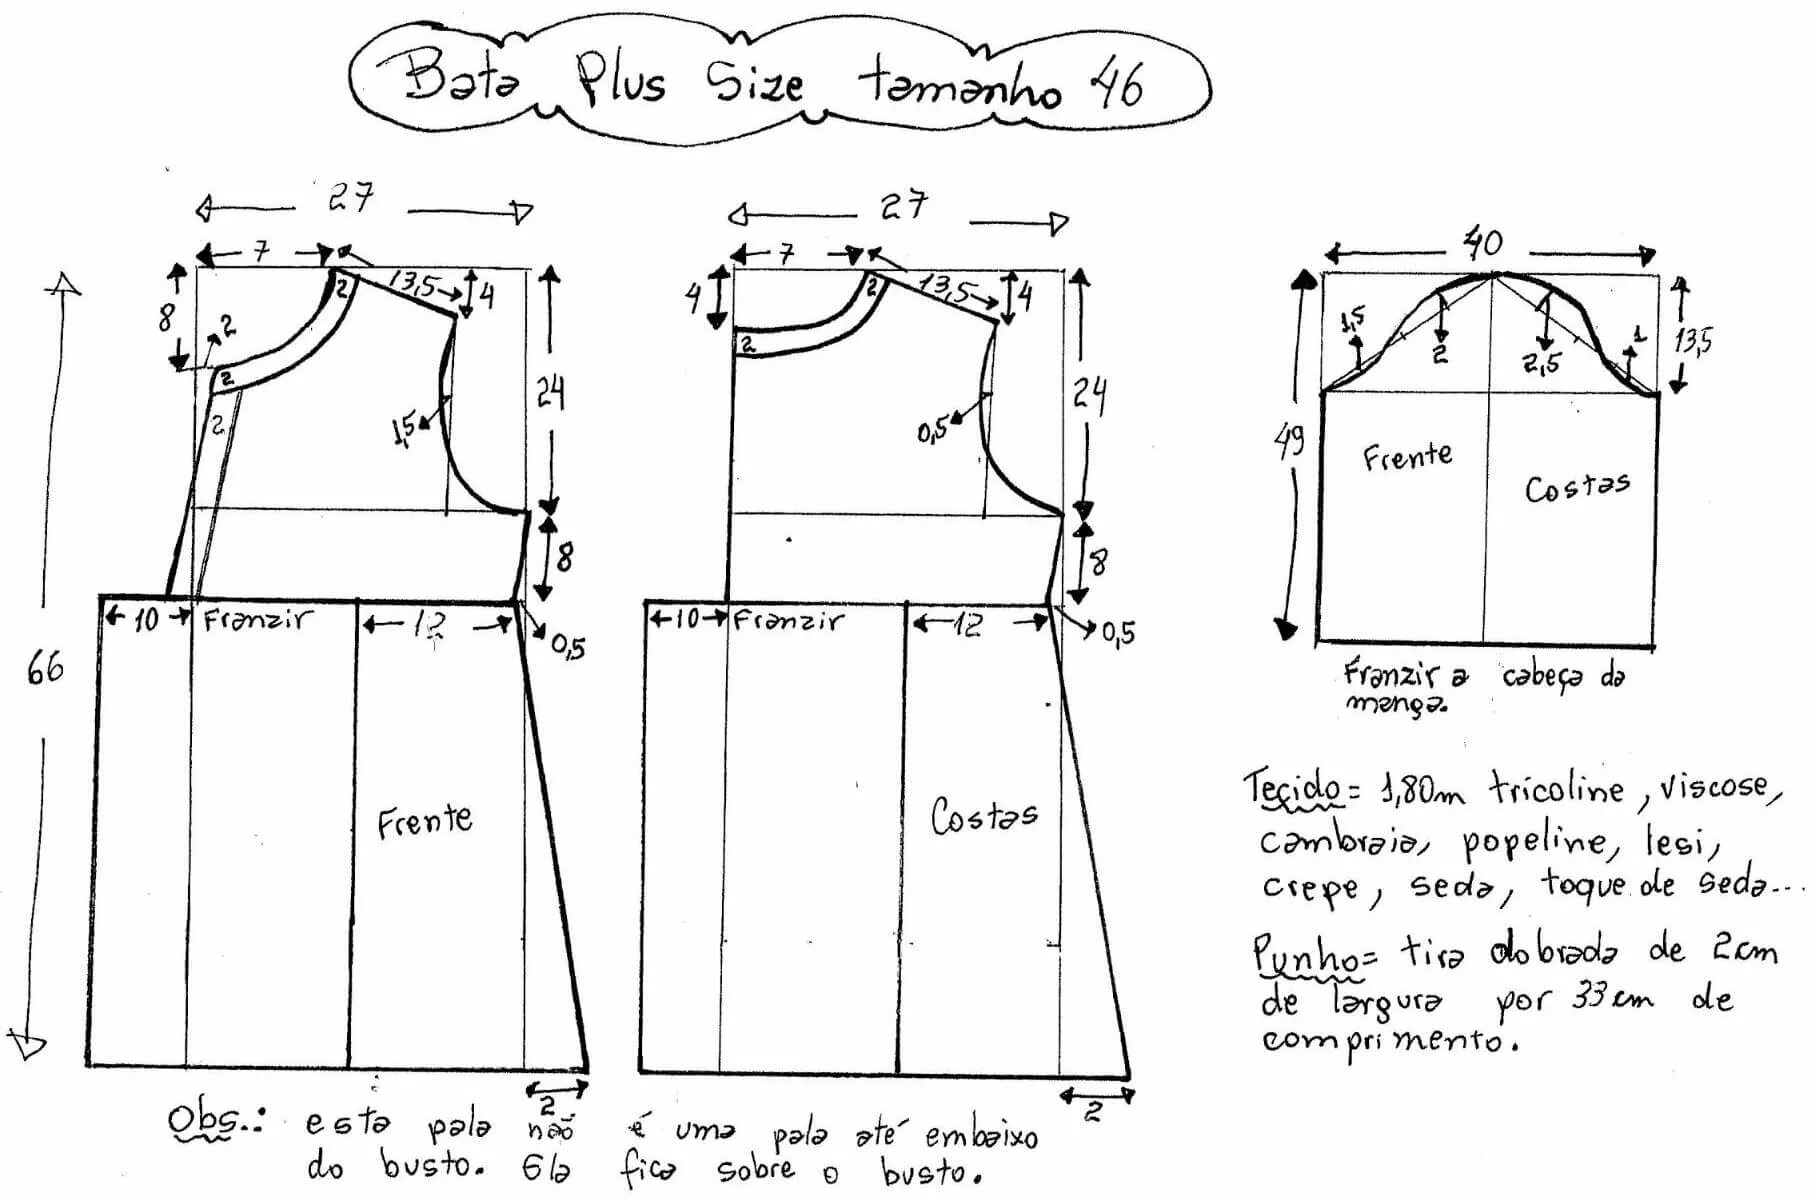 Bata Plus Size tamanho 46
27
7
13,5
4
8
2
2
2
2
24
1,5
8
10
Franzir
12
0,5
66
Frente
2
27
7
13,5
4
4
2
2
24
0,5
8
10
Franzir
12
0,5
Costas
2
40
1,5
2
2,5
1
13,5
49
Frente
Costas
Franzir a cabeça da
manga.
Tecido = 1,80m tricoline, viscose,
cambraia, popeline, lesi,
crepe, seda, toque de seda...
Punho = tira dobrada de 2cm
de largura por 33cm de
comprimento.
Obs.: esta pala não é uma pala até embaixo
do busto. Ela fica sobre o busto.